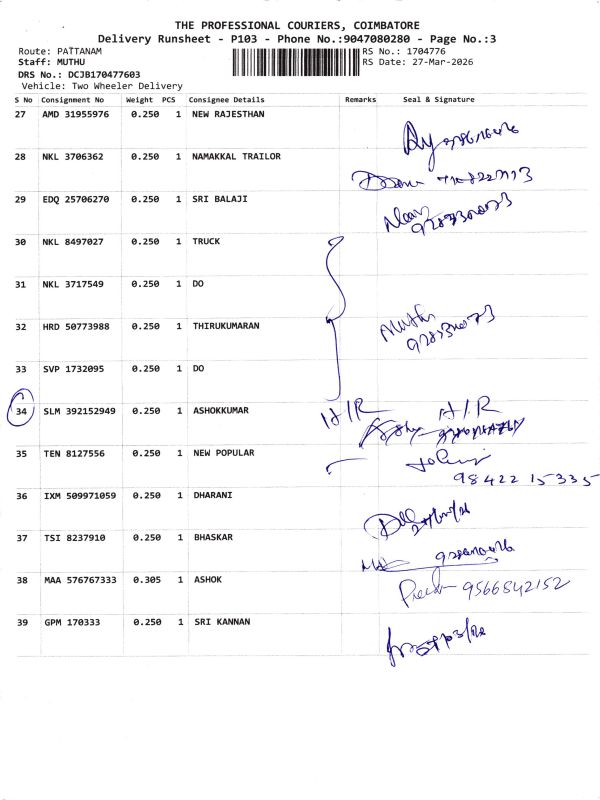 THE PROFESSIONAL COURIERS, COIMBATORE
Delivery Runsheet - P103 - Phone No.:9047080280 - Page No.:3
Route: PATTANAM
RS No.: 1704776
Staff: MUTHU
RS Date: 27-Mar-2026
DRS No.: DCJB170477603
Vehicle: Two Wheeler Delivery
S No Consignment No Weight PCS Consignee Details Remarks Seal & Signature
27 AMD 31955976 0.250 1 NEW RAJESTHAN
28 NKL 3706362 0.250 1 NAMAKKAL TRAILOR
29 EDQ 25706270 0.250 1 SRI BALAJI
30 NKL 8497027 0.250 1 TRUCK
31 NKL 3717549 0.250 1 DO
32 HRD 50773988 0.250 1 THIRUKUMARAN
33 SVP 1732095 0.250 1 DO
34 SLM 392152949 0.250 1 ASHOKKUMAR H/R H/R
35 TEN 8127556 0.250 1 NEW POPULAR
98422 15335
36 IXM 509971059 0.250 1 DHARANI
37 TSI 8237910 0.250 1 BHASKAR
38 MAA 576767333 0.305 1 ASHOK 9566842152
39 GPM 170333 0.250 1 SRI KANNAN